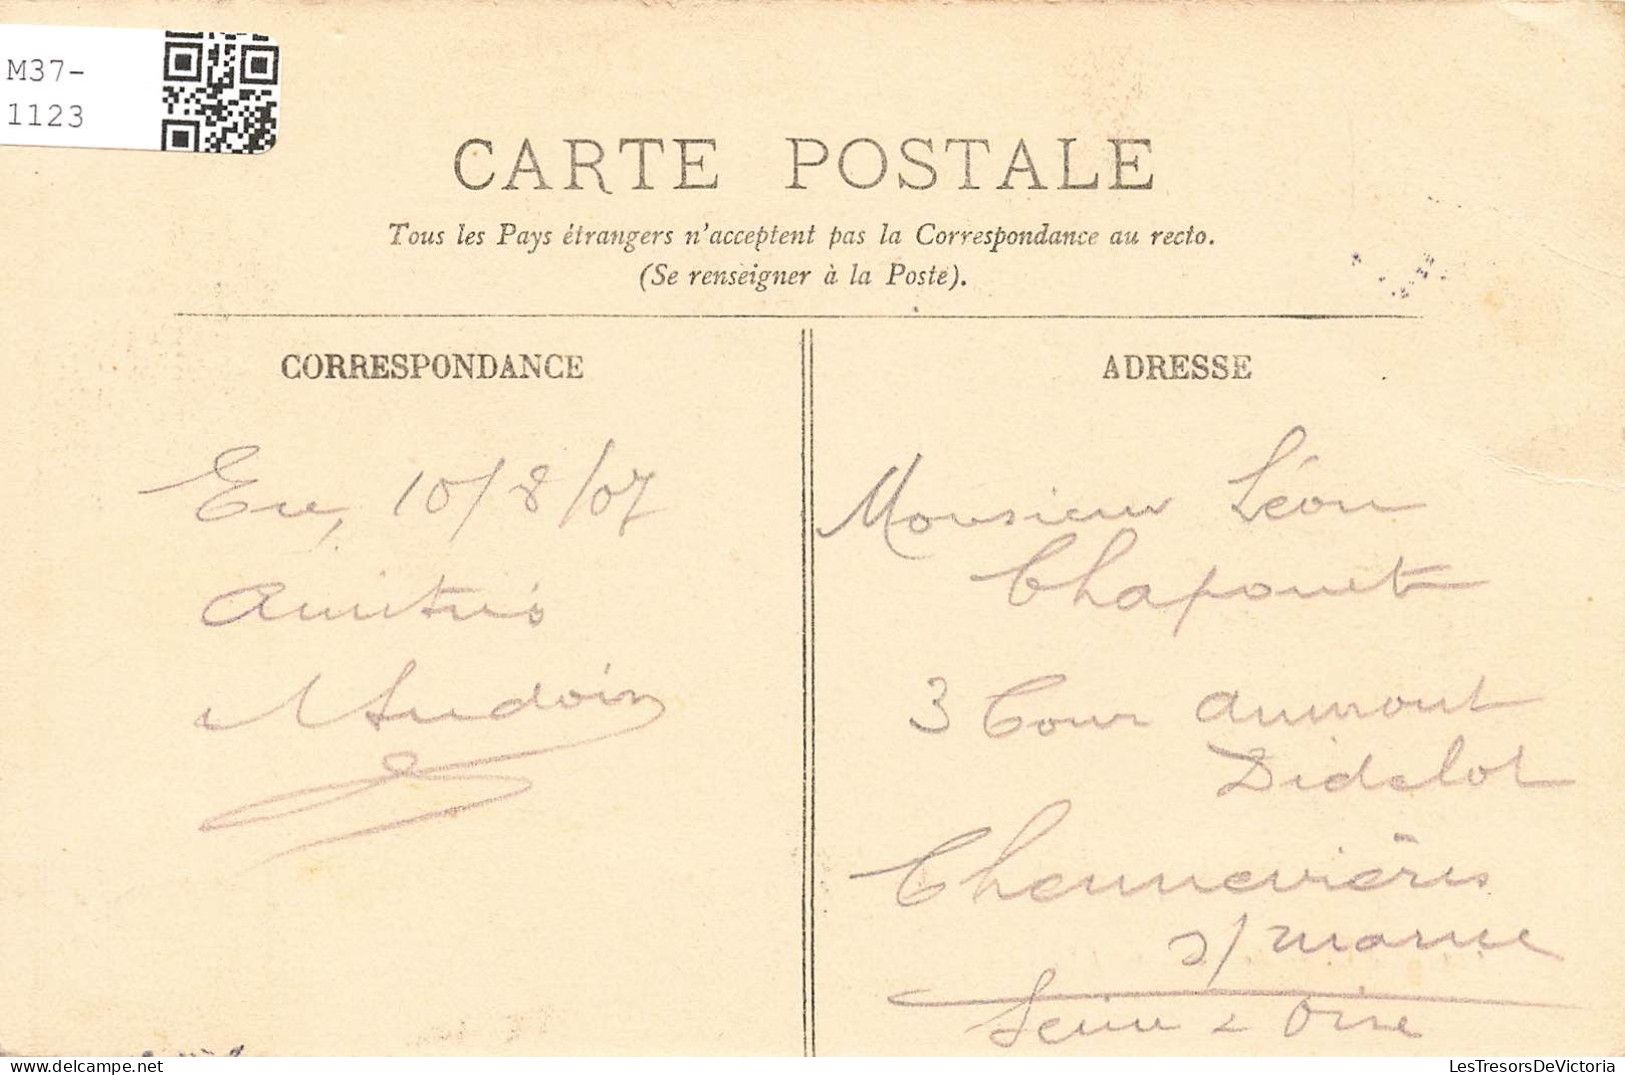 M37-
1123
CARTE POSTALE
Tous les Pays étrangers n'acceptent pas la Correspondance au recto.
(Se renseigner à la Poste).
CORRESPONDANCE
ADRESSE
Eu, 10/8/07
Amitiés
Audoin
Monsieur Léon
Chapouet
3 Cour Aumont
Didelot
Chennevières
s/ marne
Seine & Oise
LesTresorsDeVictoria